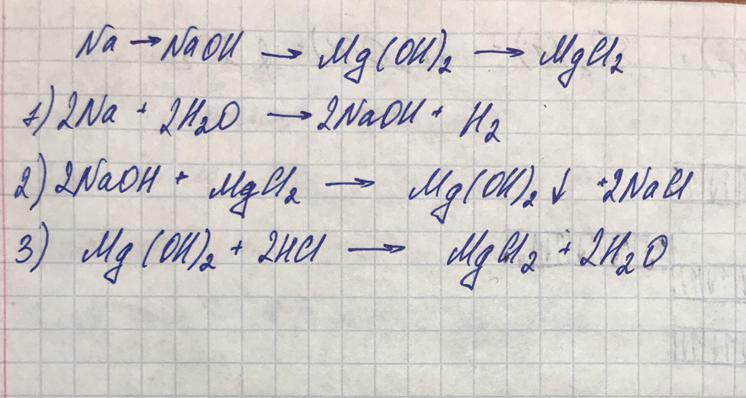 Na → NaOH → Mg(OH)₂ → MgCl₂
1) 2Na + 2H₂O → 2NaOH + H₂
2) 2NaOH + MgCl₂ → Mg(OH)₂ ↓ + 2NaCl
3) Mg(OH)₂ + 2HCl → MgCl₂ + 2H₂O